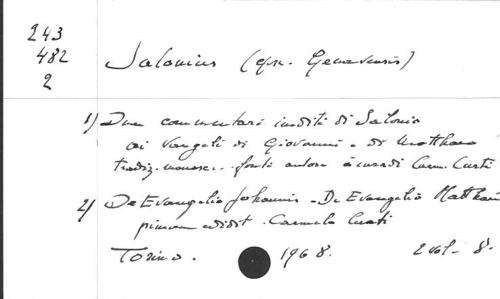 243
482
2
Salonius (epsc. Genavensis)
1) Due commentari inediti di Salonio
ai Vangeli di Giovanni e di Matteo
tradiz. manosc. fonti autore a cura di Carm. Curti
2) De Evangelio Johannis - De Evangelio Matthaei
primum edidit Carmelo Curti
Torino. 1968. 2 vol. - 8.